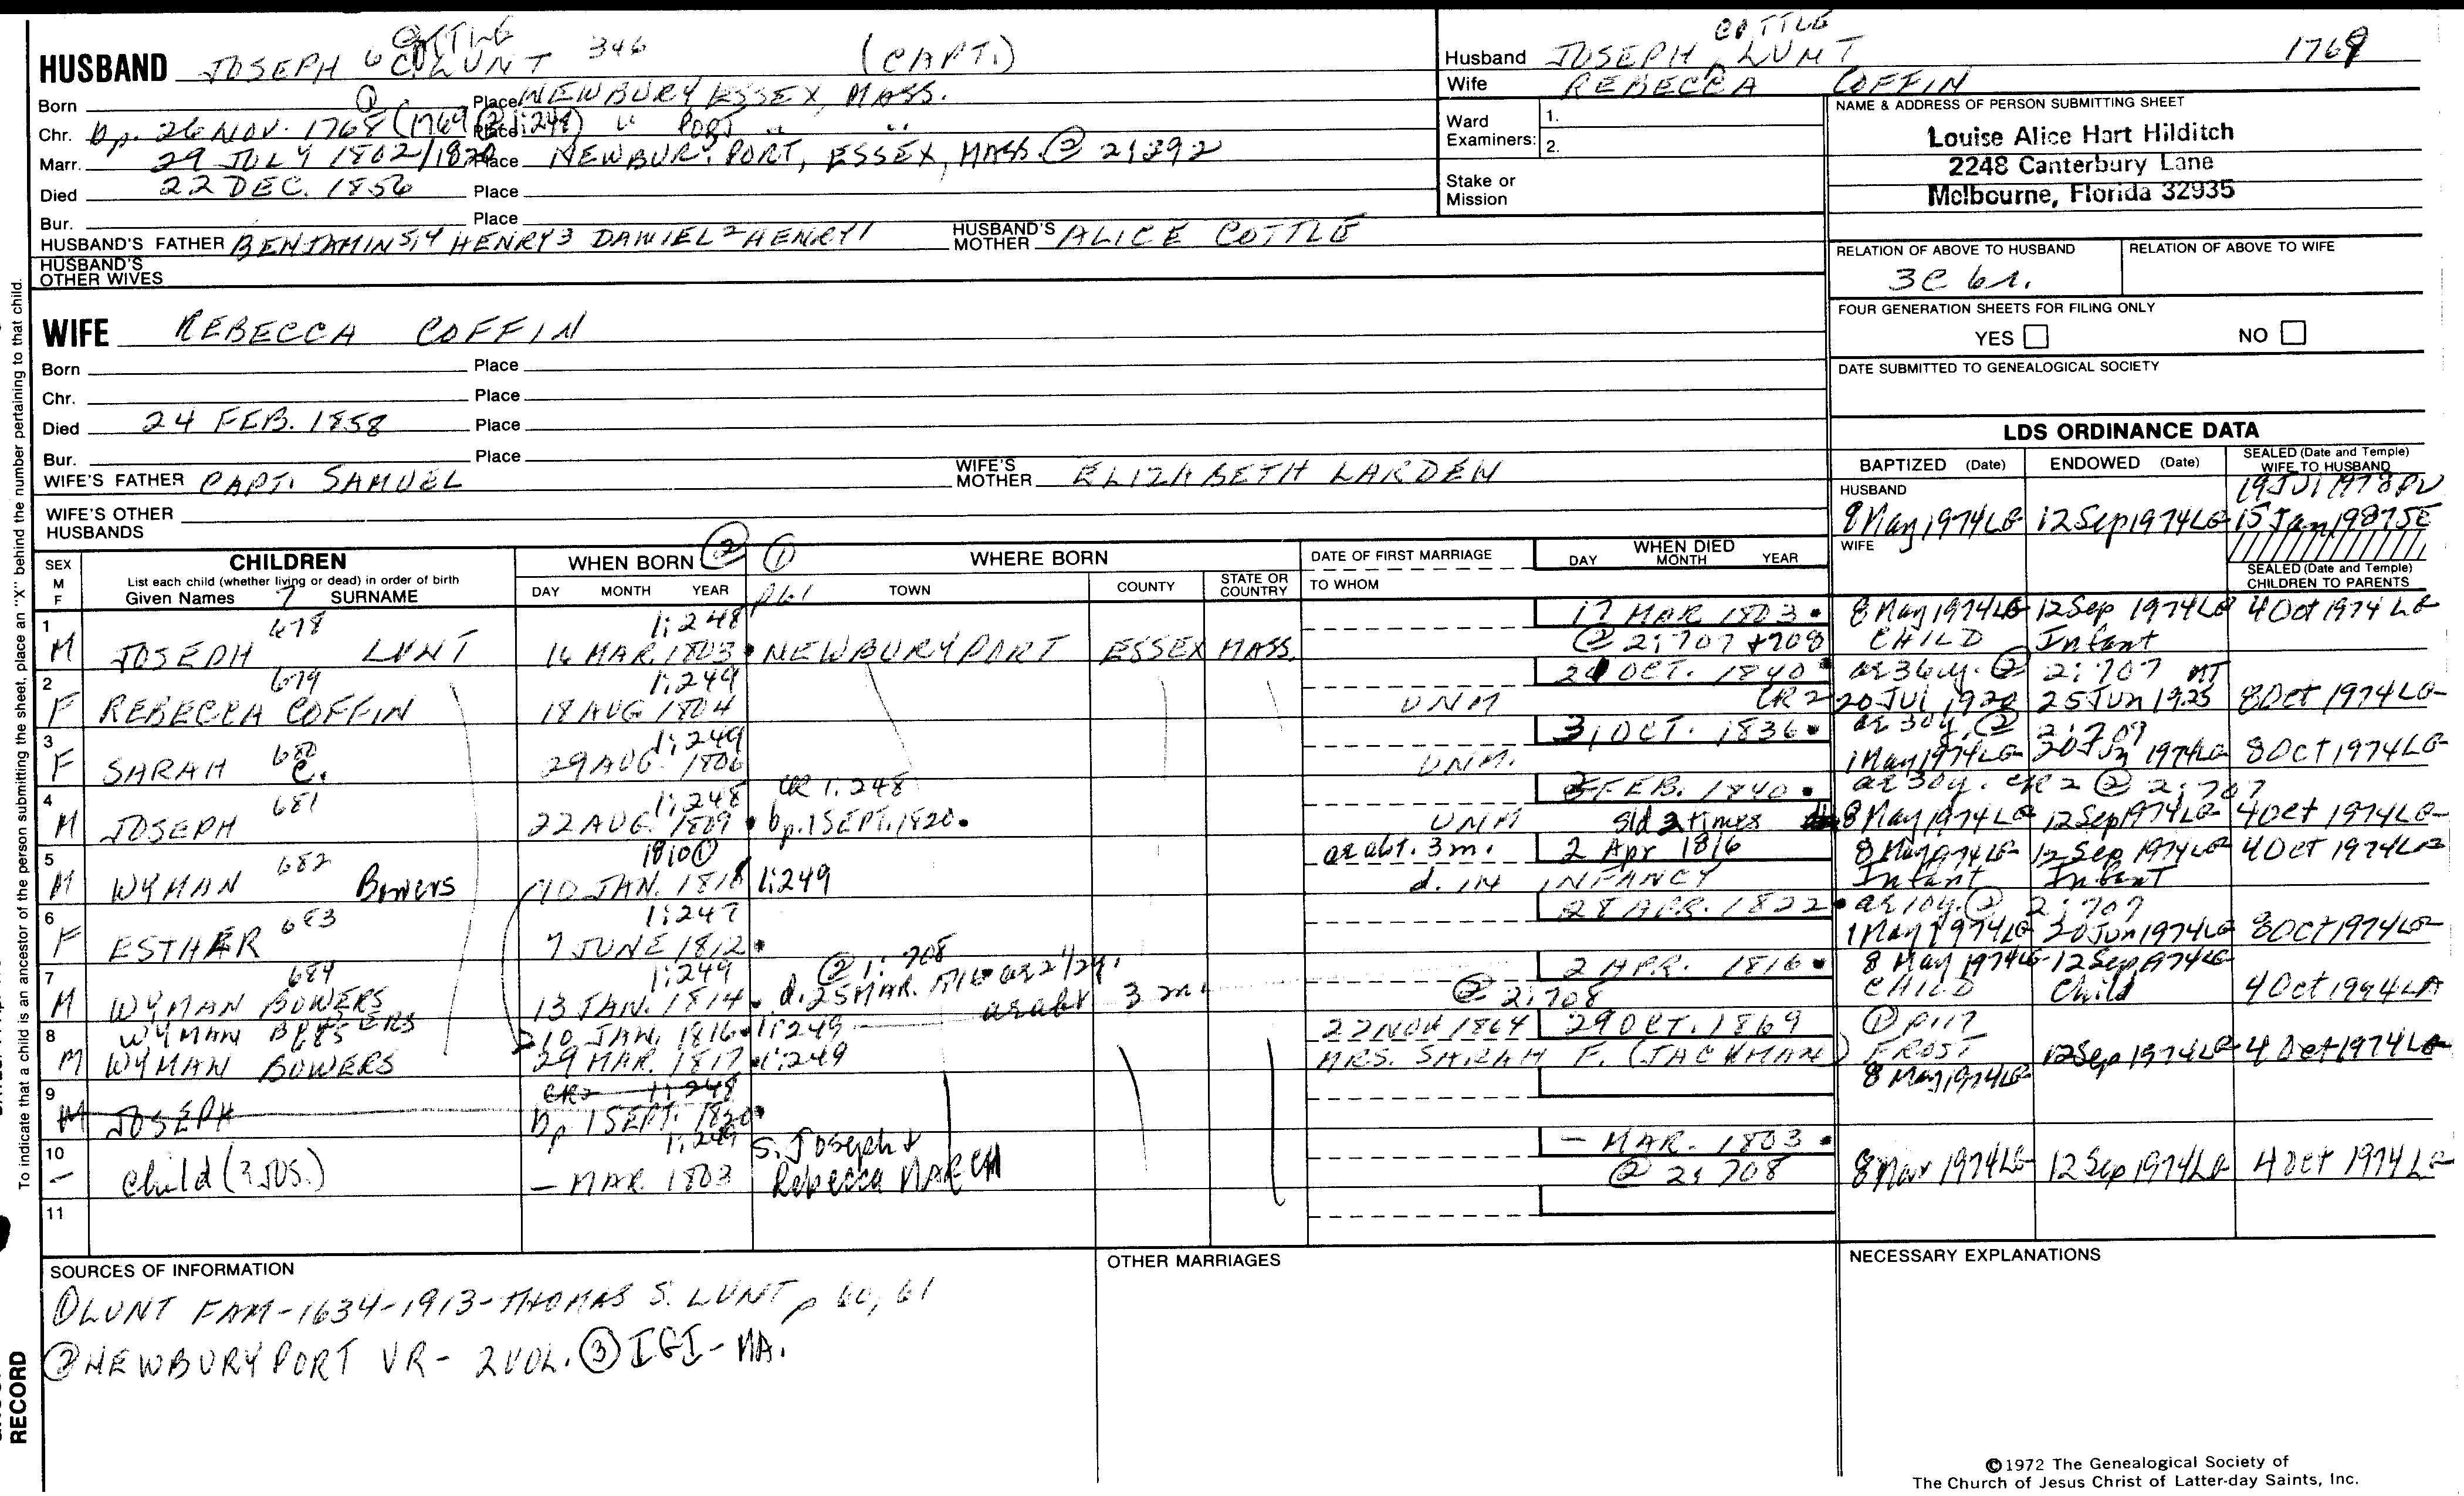 COTTLE
HUSBAND JOSEPH 6 C. LUNT 346 (CAPT.)
Born Place NEWBURY ESSEX, MASS.
Chr. bp. 26 NOV. 1768 (1769 @ 1:248) Place " PORT " "
Marr. 29 JULY 1802/1820 Place NEWBURYPORT, ESSEX, MASS. @ 2:292
Died 22 DEC. 1856 Place
Bur. Place
HUSBAND'S FATHER BENJAMIN 5,4 HENRY 3 DANIEL 2 HENRY 1 HUSBAND'S MOTHER ALICE COTTLE
HUSBAND'S OTHER WIVES
WIFE REBECCA COFFIN
Born Place
Chr. Place
Died 24 FEB. 1858 Place
Bur. Place
WIFE'S FATHER CAPT. SAMUEL WIFE'S MOTHER ELIZABETH LARDEN
WIFE'S OTHER HUSBANDS
COTTLE
Husband JOSEPH LUNT 1769
Wife REBECCA COFFIN
Ward Examiners: 1.
2.
Stake or Mission
NAME & ADDRESS OF PERSON SUBMITTING SHEET
Louise Alice Hart Hilditch
2248 Canterbury Lane
Melbourne, Florida 32935
RELATION OF ABOVE TO HUSBAND RELATION OF ABOVE TO WIFE
3C 6r.
FOUR GENERATION SHEETS FOR FILING ONLY
YES NO
DATE SUBMITTED TO GENEALOGICAL SOCIETY
LDS ORDINANCE DATA
BAPTIZED (Date) ENDOWED (Date) SEALED (Date and Temple) WIFE TO HUSBAND
HUSBAND 19 JUl 1978 PV
8 May 1974 LG 12 Sep 1974 LG 15 Jan 1987 SE
WIFE
SEALED (Date and Temple) CHILDREN TO PARENTS
SEX M F CHILDREN
List each child (whether living or dead) in order of birth
Given Names 7 SURNAME
WHEN BORN ②
DAY MONTH YEAR
① WHERE BORN
p61 TOWN COUNTY STATE OR COUNTRY
DATE OF FIRST MARRIAGE
TO WHOM
WHEN DIED
DAY MONTH YEAR
1 678 1:248 17 MAR 1803 8 May 1974 LG 12 Sep 1974 LG 4 Oct 1974 LG
M JOSEPH LUNT 16 MAR. 1803 NEWBURYPORT ESSEX MASS. @ 2:707 + 708 CHILD Infant
2 679 1:249 OCT. 1840 ae 36y. @ 2:707
F REBECCA COFFIN 18 AUG 1804 UNM CR 2 20 Jul 25 Jun 1925 8 Oct 1974 LG
3 680 1:249 31 OCT. 1836 ae 30y. @ 2:707
F SARAH C. 29 AUG 1806 UNM. 1 May 1974 LG 1974 LG 8 OCT 1974 LG
4 681 1:248 CR 1:248 FEB. 1840 ae 30y. CR 2 @ 2:707
M JOSEPH 22 AUG. 1809 bp. 1 SEPT. 1820. UNM sld 2 times 8 May 1974 LG 12 Sep 1974 LG 4 Oct 1974 LG
5 682 1810① ae abt. 3 m. 2 Apr 1816 8 May 1974 LG 12 Sep 1974 LG 4 Oct 1974 LG
M WYMAN Bowers 10 JAN. 1816 1:249 d. IN INFANCY Infant Infant
6 683 1:247 28 APR. 1822 ae 10y. @ 2:707
F ESTHER 7 JUNE 1812 1 May 1974 LG 20 Jun 1974 LG 8 OCT 1974 LG
7 684 1:249 @ 1:708 2 APR. 1816 8 May 1974 LG 12 Sep 1974 LG
M WYMAN BOWERS 13 JAN. 1814. d. 25 MAR. 1816 ae 2 1/2y. ae abt 3 m. @ 2:708 CHILD Child 4 Oct 1994 LA
8 WYMAN 10 JAN. 1816 1:249 22 NOV 1864 29 OCT. 1869 ① p.117
M WYMAN BOWERS 29 MAR. 1817 1:249 MRS. SARAH F. (JACKMAN) FROST 12 Sep 1974 LG 4 Oct 1974 LG
8 May 1974 LG
9 CR2 1:248
M JOSEPH bp 1 SEPT. 1820
10 1:249 S. Joseph & - MAR. 1803
- child (? JOS.) - MAR. 1803 Rebecca MARCH @ 2:708 8 Mar 1974 LG 12 Sep 1974 LG 4 Oct 1974 LG
11
SOURCES OF INFORMATION OTHER MARRIAGES NECESSARY EXPLANATIONS
① LUNT FAM - 1634-1913 - THOMAS S. LUNT p 60, 61
② NEWBURYPORT VR - 2 VOL. ③ IGI - MA.
©1972 The Genealogical Society of
The Church of Jesus Christ of Latter-day Saints, Inc.
To indicate that a child is an ancestor of the person submitting the sheet, place an "X" behind the number pertaining to that child.
RECORD